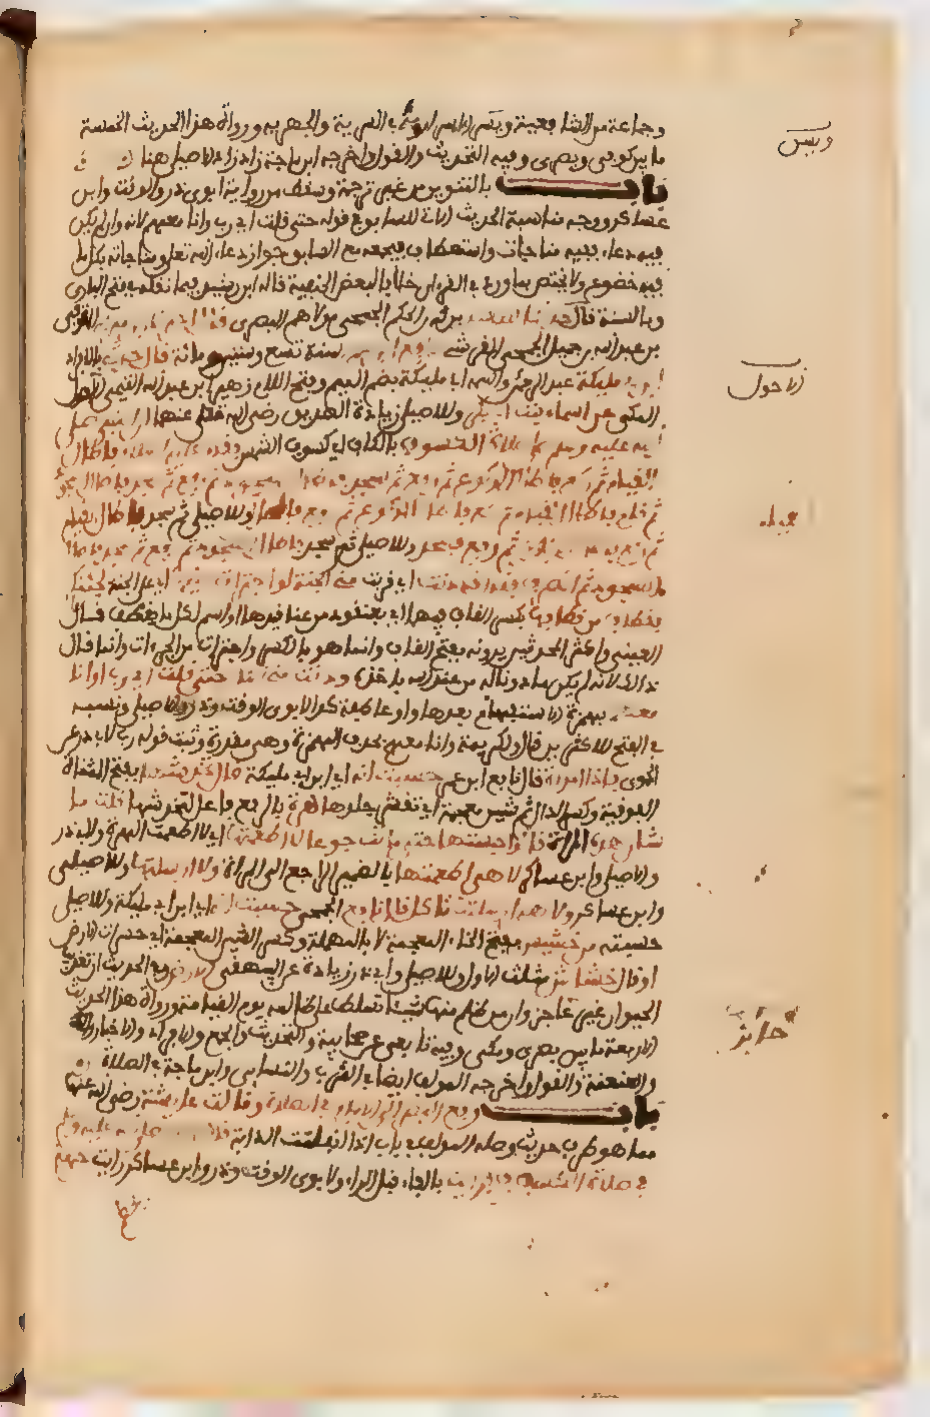 وجماعة من الشافعية وبين السرية والجهرية ورواة هذا الحديث الخمسة
ما بين كوفي وبصري وفيه التحديث والقول واخرجه ابن ماجة زاد الاصيلي هنا
باب بالتنوين من غير ترجمة وسقط من رواية ابوي ذر والوقت وابن
عساكر ووجه مناسبة الحديث الاتي للسابق قوله حتى قلت اي رب وانا معهم لانه وان لم يكن
فيه دعاء ففيه مناجات واستعطاف فيجمعه مع السابق جواز دعاء الله تعالى ومناجاته بكل ما
فيه خضوع ولا يختص بما ورد في القرءان خلافا لبعض الحنفية قاله ابن رشيد فيما نقله في فتح الباري
وبالسند قال حدثنا ابن ابي مريم بن الحكم الجمحي مولاهم البصري قال اخبرنا نافع
بن عبد الله بن جميل الجمحي القرشي سنة تسع وستين ومائة قال حدثني بالافراد
ابن ابي مليكة عبد الرحمن واسم ابي مليكة بضم الميم وفتح اللام زهير بن عبد الله التيمي الاحول
المكي عن اسماء بنت ابي بكر وللاصيلي زيادة الصديق رضي الله تعالى عنهما ان النبي صلى
الله عليه وسلم صلى صلاة الكسوف بالكاف اي كسوف الشمس فقام فاطال
القيام ثم ركع فاطال الركوع ثم رفع ثم سجد فاطال السجود ثم رفع ثم سجد فاطال السجود
ثم قام فاطال القيام ثم ركع فاطال الركوع ثم رفع فاطال وللاصيلي ثم سجد فاطال القيام
ثم رفع فسجد وللاصيلي ثم سجد فاطال السجود ثم رفع ثم سجد فاطال
السجود ثم انصرف فقال قد دنت اي قربت مني الجنة لو اجترات عليها اي على الجنة لجئتكم
بقطاف من قطافها بكسر القاف فيهما اي بعنقود من عناقيدها او اسم لكل ما يقطف قال
العيني واكثر المحدثين يروونه بفتح القاف وانما هو بالكسر واجترات من الجراءة وانما قال
ذلك لانه لم يكن ماذونا له من عند الله باخذه ودنت مني النار حتى قلت اي رب اوانا
معهم بهمزة الاستفهام بعدها واو عاطفة كذا لابوي الوقت وذر والاصيلي ونسبه
في الفتح للاكثرين قال ولكريمة وانا معهم بحذف الهمزة وهي مقدرة وثبت قوله رب لابي ذر عن
الحموي فاذا امراة قال نافع ابن عمر حسبت انه اي ابن ابي مليكة قال تخدشها بفتح المثناة
الفوقية وكسر الدال ثم شين معجمة اي تقشر جلدها هرة بالرفع فاعل تخدشها قلت ما
شان هذه المراة قالوا حبستها حتى ماتت جوعا لا اطعمتها اي لا اطعمت الهرة ولابي ذر
والاصيلي وابن عساكر لا هي اطعمتها بالضمير الراجع الى المراة ولا ارسلتها وللاصيلي
وابن عساكر ولا هي ارسلتها تاكل قال نافع الجمحي حسبت انه اي ابن ابي مليكة وللاصيلي
حسبته من خشيش بفتح الخاء المعجمة لا بالمهملة وكسر الشين المعجمة اي حشرات الارض
او قال خشاش مثلث الاول وللاصيلي وابي ذر زيادة الارض وفي الحديث ان تعذيب
الحيوان غير جائز وان من ظلم منها شيئا تسلط على ظالمه يوم القيامة ورواة هذا الحديث
الاربعة ما بين بصري ومكي وفيه تابعي عن صحابية والتحديث والجمع والافراد والاخبار
والعنعنة والقول واخرجه المولف ايضا في الشرب والنسائي وابن ماجة في الصلاة
باب رفع البصر الى الامام في الصلاة وقالت عائشة رضي الله عنها
مما هو طرف حديث وصله المولف في باب اذا انفلتت الدابة قال النبي صلى الله عليه وسلم
في صلاة الكسوف فرايت بالفاء قبل الراء ولابوي الوقت وذر وابن عساكر رايت جهنم
وبين
الاحول
جائز